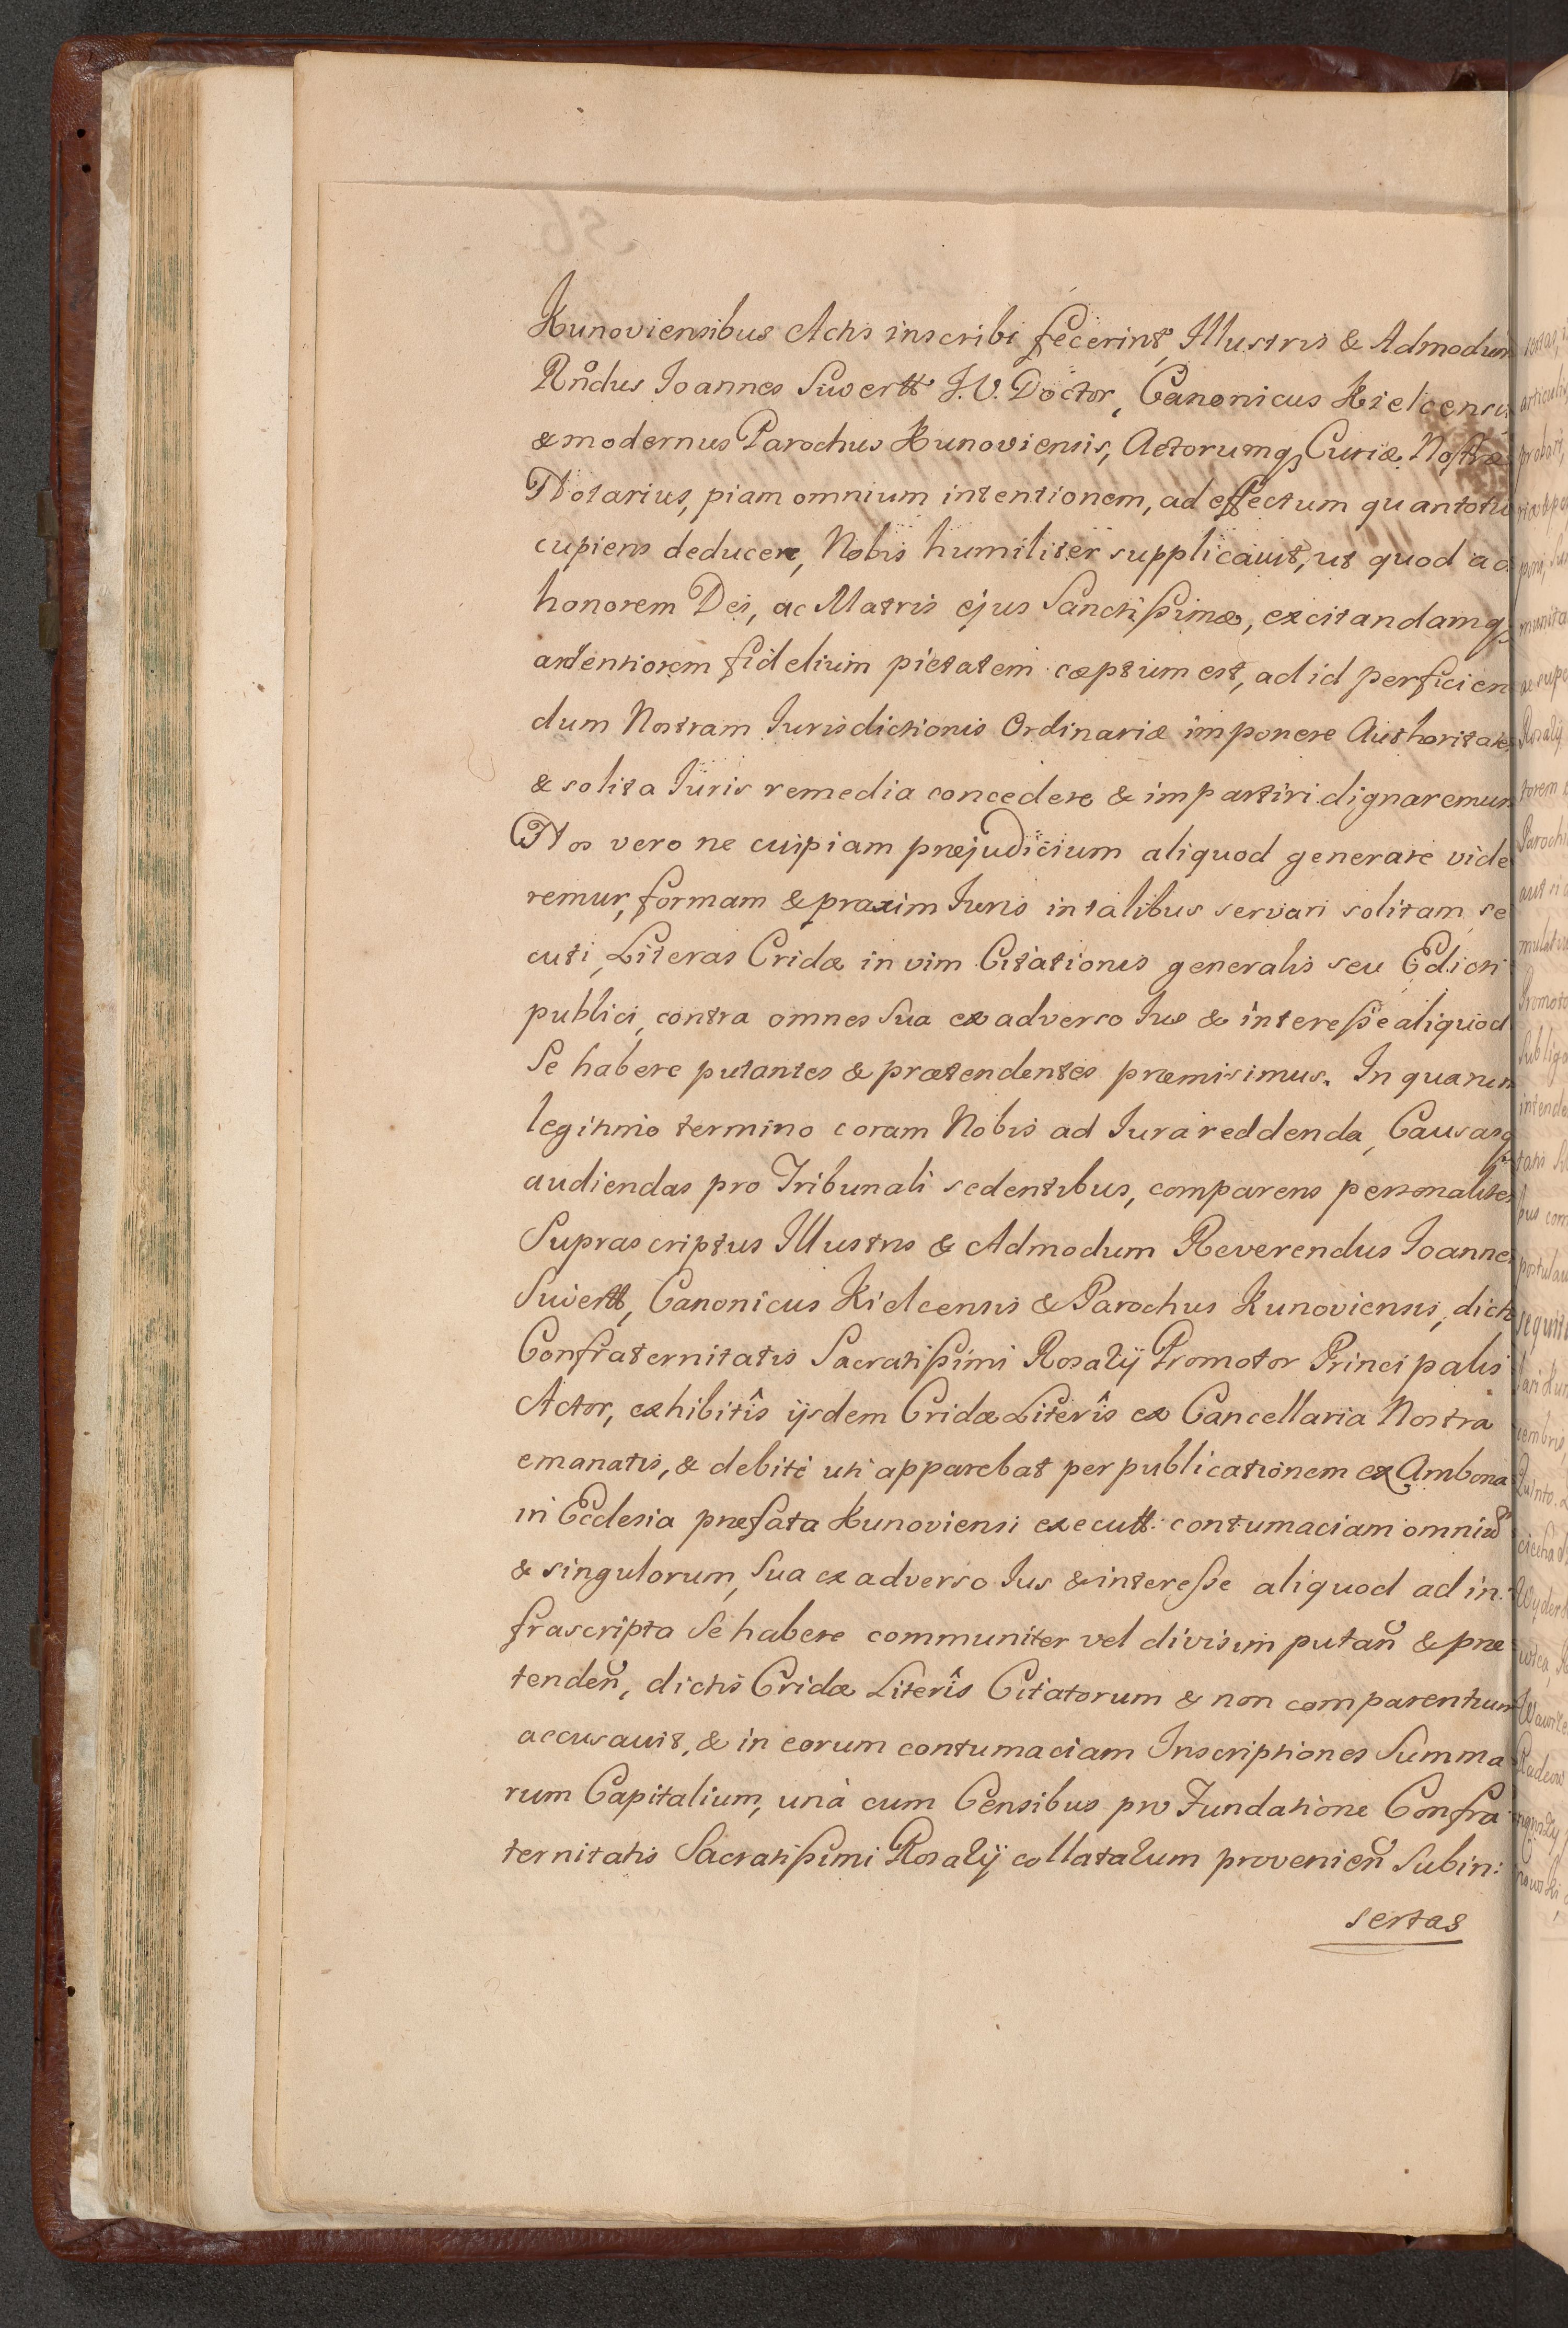 Kunoviensibus Actis inscribi fecerint, Illustris & Admodum
Rndus Ioannes Suwertt I.V. Doctor, Canonicus Kielcensis
& modernus Parochus Kunoviensis, Actorumq; Curiæ Nostræ
Notarius, piam omnium intentionem, ad effectum quantotiu
cupiens deducere, Nobis humiliter supplicavit, ut quod ad
honorem Dei, ac Matris ejus Sanctissimæ, excitandamq;
ardentiorem fidelium pietatem cæptum est, ad id perficien
dum Nostram Iurisdictionis Ordinariæ imponere Authoritatem
& solita Iuris remedia concedere & impartiri dignaremur
Nos vero ne cuipiam præjudicium aliquod generare vide
remur, formam & praxim Iuris in talibus servari solitam se
cuti, Literas Cridæ in vim Citationis generalis seu Edicti
publici, contra omnes Sua ex adverso Ius & interesse aliquod
Se habere putantes & prætendentes præmisimus. In quarum
legitimo termino coram Nobis ad Iura reddenda, Causasq;
audiendas pro Tribunali sedentibus, comparens personaliter
Suprascriptus Illustris & Admodum Reverendus Ioannes
Suwertt, Canonicus Kielcensis & Parochus Kunoviensis, dictæ
Confraternitatis Sacratissimi Rosarÿ Promotor Principalis
Actor, exhibitîs ijsdem Cridæ Literîs ex Cancellaria Nostra
emanatis, & debitè uti apparebat per publicationem ex Ambona
in Ecclesia præfata Kunoviensi executt: contumaciam omniũ
& singulorum, Sua ex adverso Ius & interesse aliquod ad in:
frascripta Se habere communiter vel divisim putan̄ & præ
tenden̄, dictis Cridæ Literîs Citatorum & non comparentium
accusavit, & in eorum contumaciam Inscriptiones Summa
rum Capitalium, unà cum Censibus pro Fundatione Confra
ternitatis Sacratissimi Rosarÿ collatarum provenien̄ Subin:
sertas